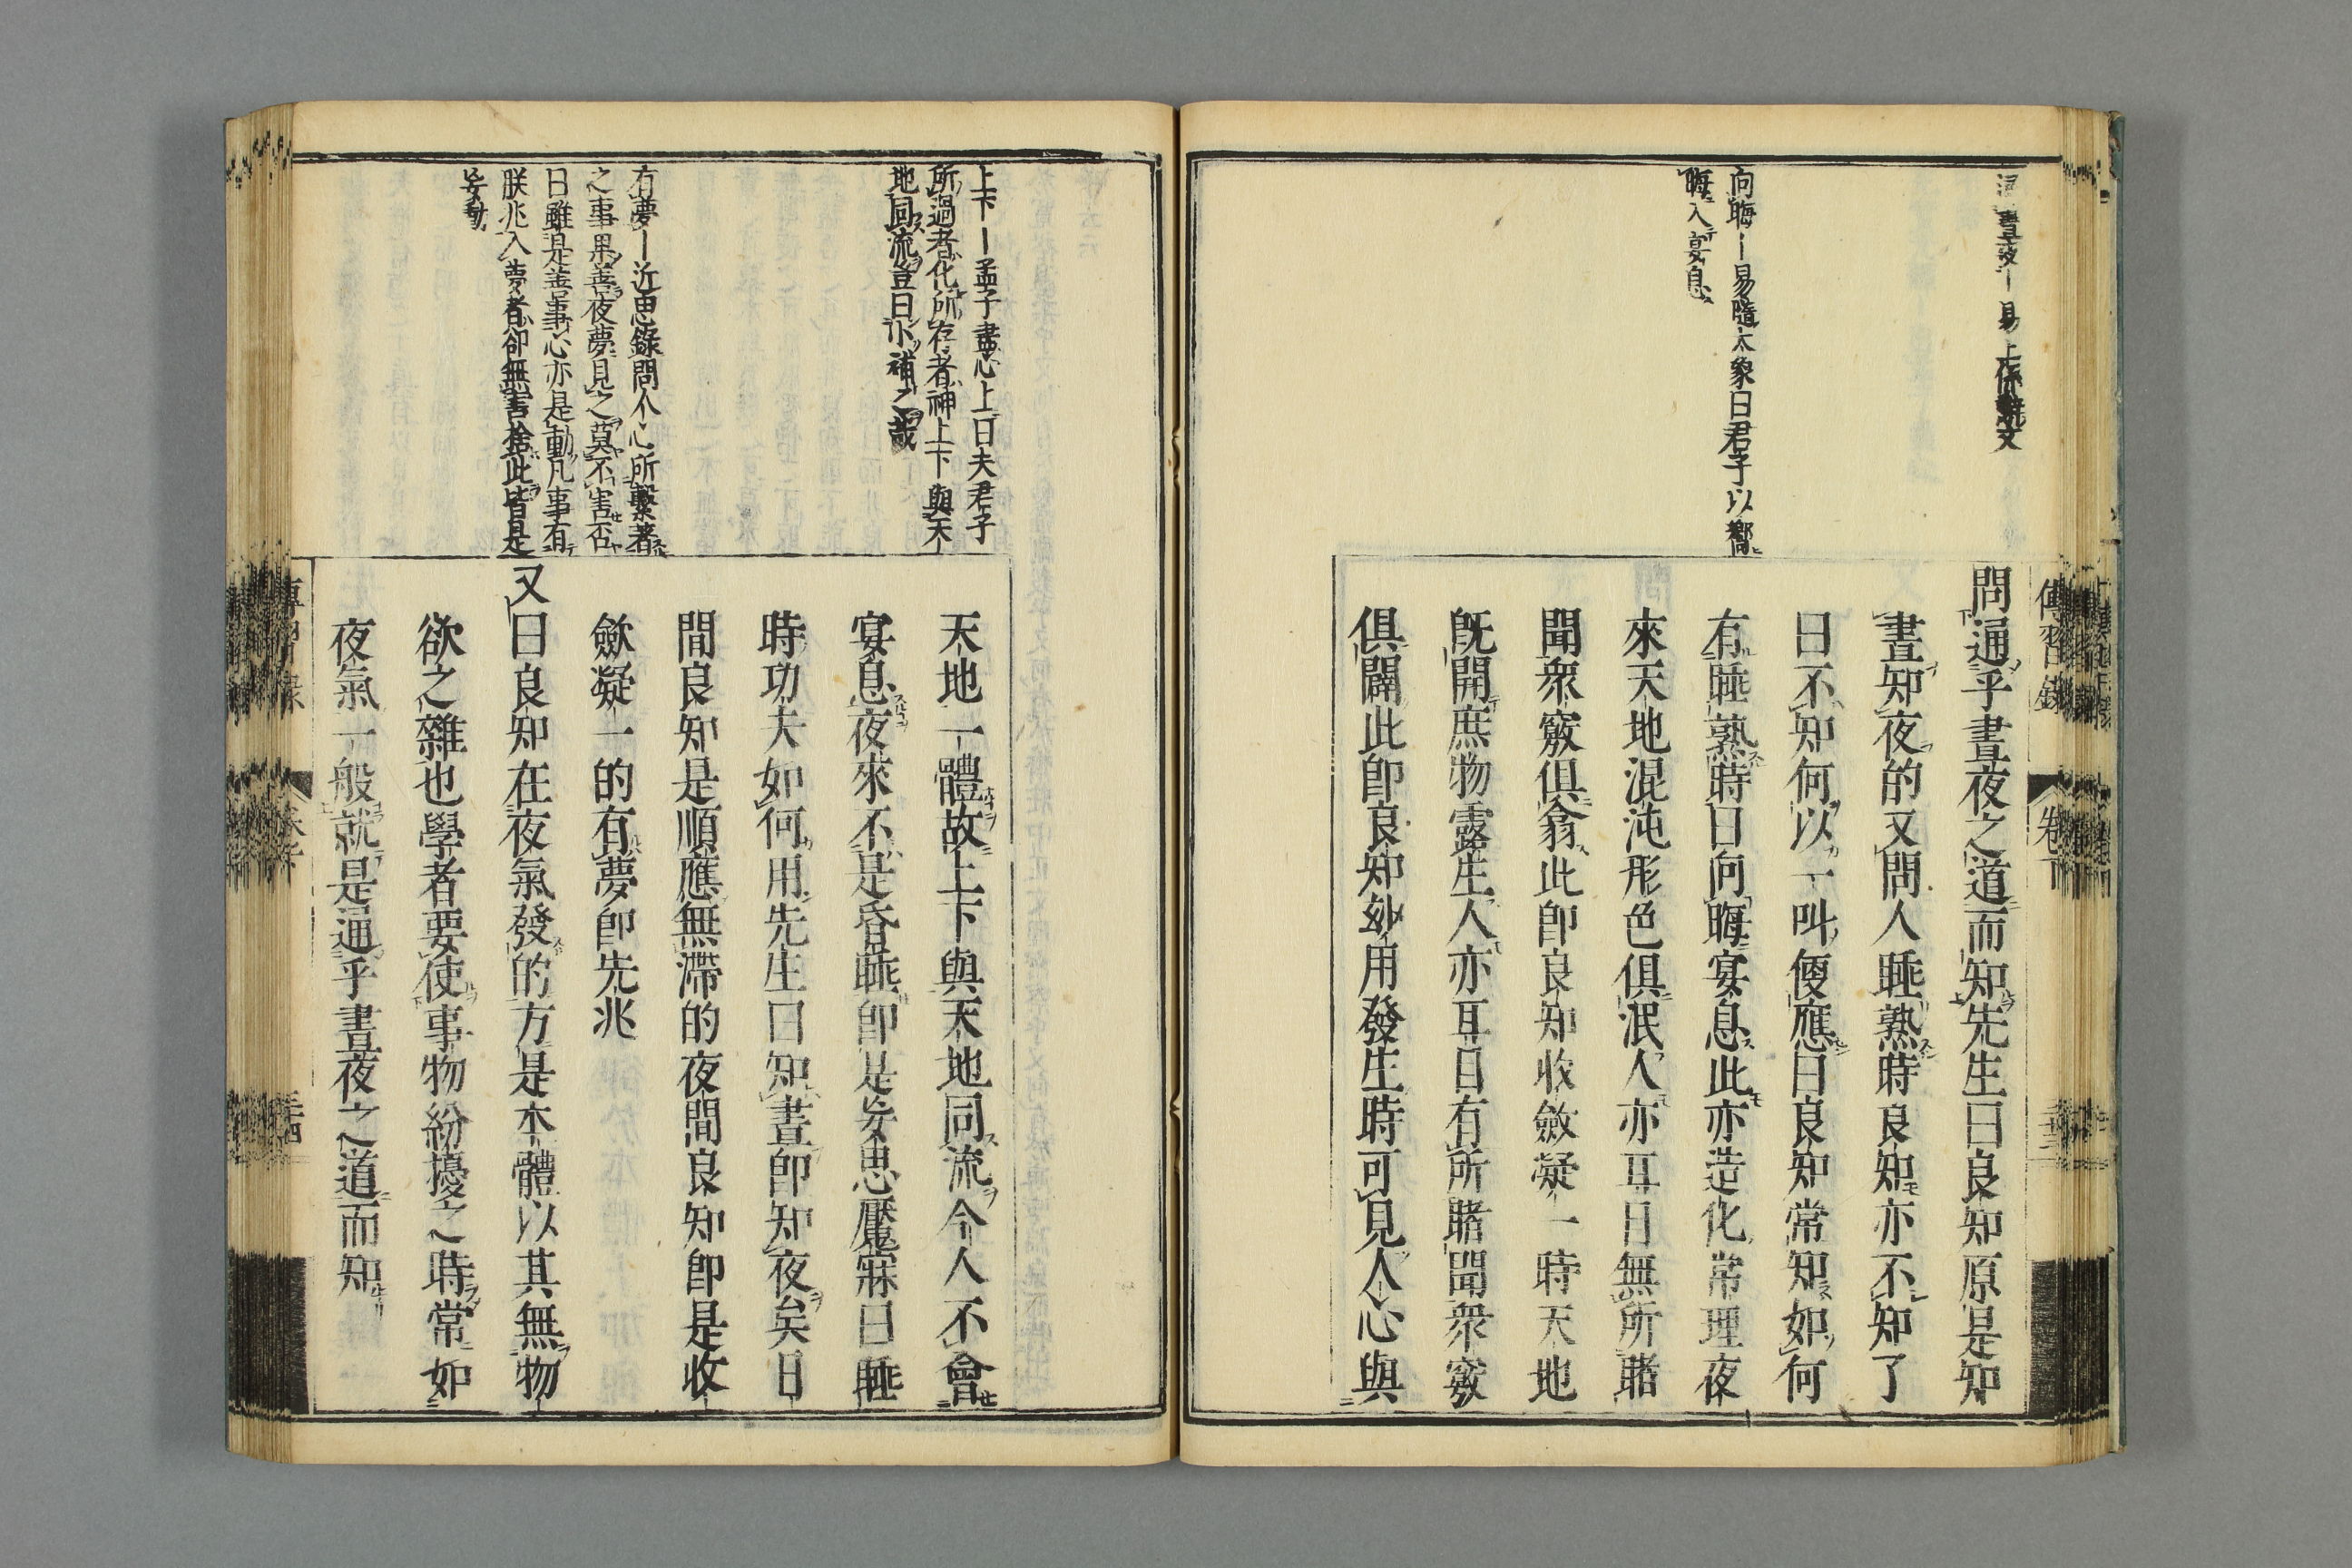 通晝夜丨易上係辭文
向晦丨易隨大象曰君子以嚮
晦入宴息
問通乎晝夜之道而知先生曰良知原是知
晝知夜的又問人睡熟時良知亦不知了
曰不知何以一叫便應曰良知常知如何
有睡熟時曰向晦宴息此亦造化常理夜
來天地混沌形色俱泯人亦耳目無所睹
聞衆竅俱翕此卽良知收斂凝一時天地
旣開庶物露生人亦耳目有所睹聞衆竅
俱闢此卽良知妙用發生時可見人心與
傳習錄
卷下
上下丨孟子盡心上曰夫君子
所過者化所存者神上下與天
地同流豈曰小補之哉
有夢丨近思錄問人心所繫著
之事果善夜夢見之莫不害否
曰雖是善事心亦是動凡事有
朕兆入夢者卻無害捨此皆是
妄動
天地一體故上下與天地同流今人不會
宴息夜來不是昏睡卽是妄思魘寐曰睡
時功夫如何用先生曰知晝卽知夜矣日
間良知是順應無滯的夜間良知卽是收
斂凝一的有夢卽先兆
又曰良知在夜氣發的方是本體以其無物
欲之雜也學者要使事物紛擾之時常如
夜氣一般就是通乎晝夜之道而知